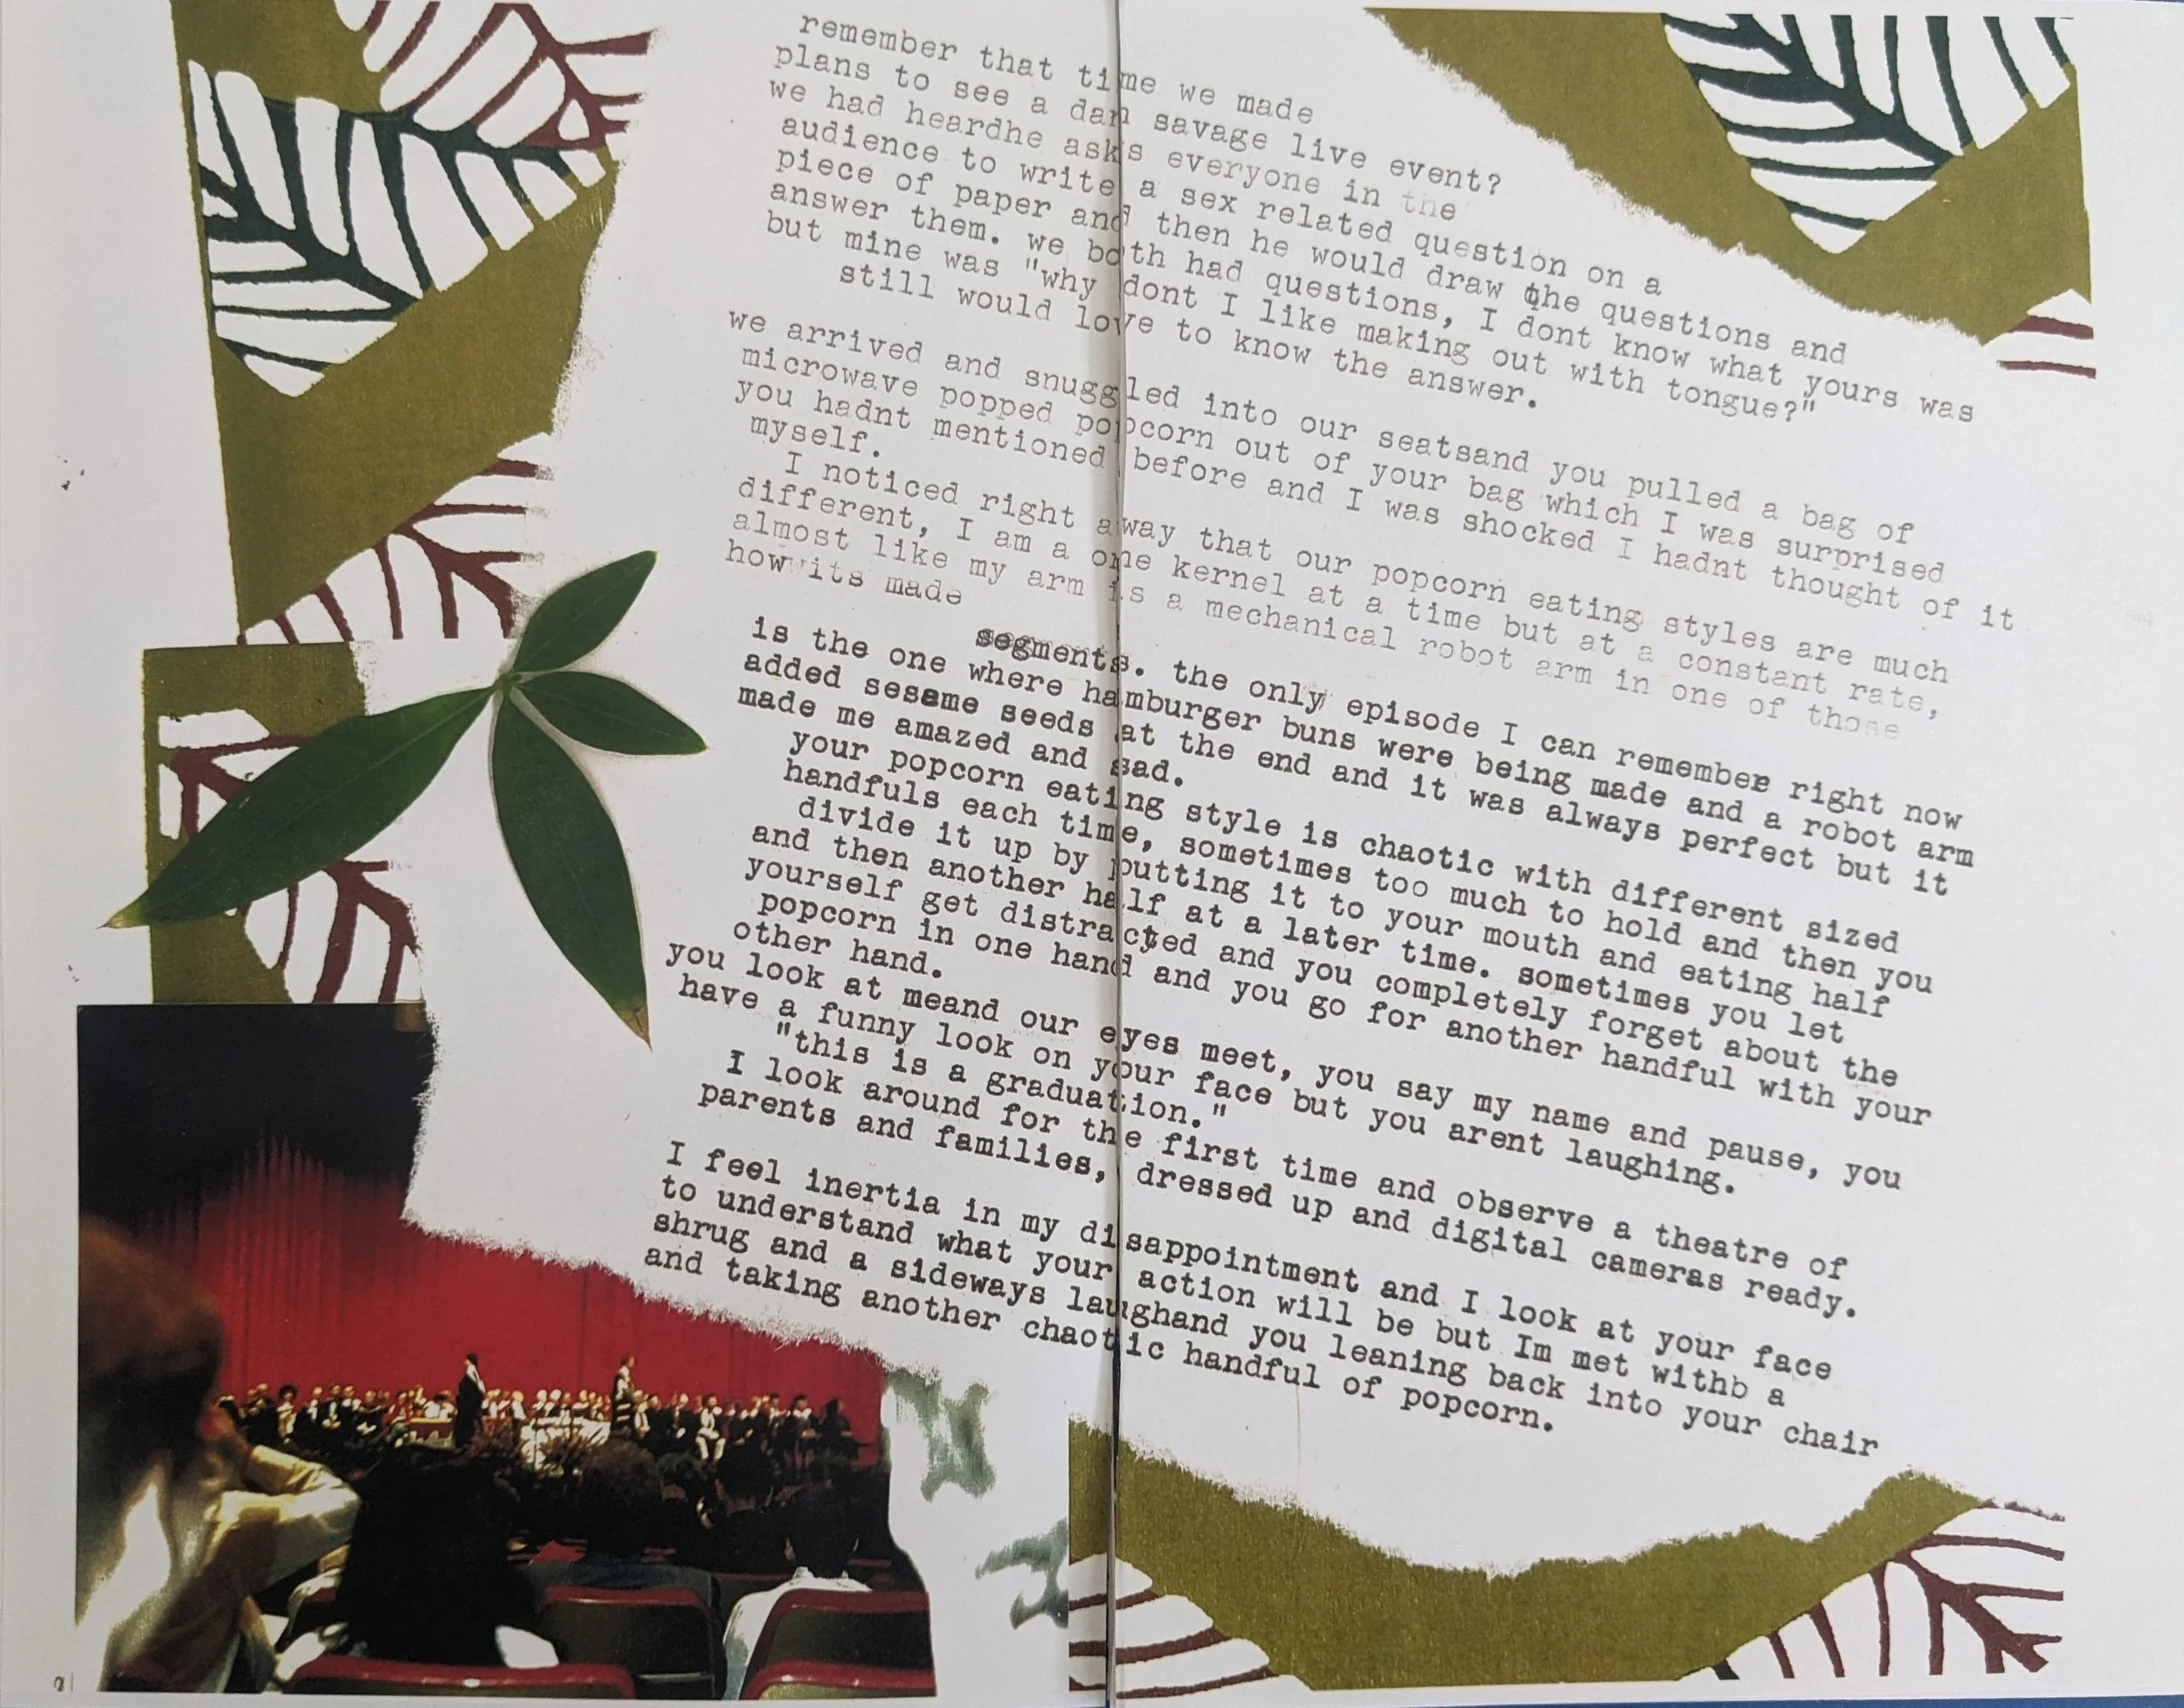 remember that time we made
plans to see a dan savage live event?
we had heardhe asks everyone in the
audience to write a sex related question on a
piece of paper and then he would draw the questions and
answer them. we both had questions, I dont know what yours was
but mine was "why dont I like making out with tongue?"
still would love to know the answer.
we arrived and snuggled into our seatsand you pulled a bag of
microwave popped popcorn out of your bag which I was surprised
you hadnt mentioned before and I was shocked I hadnt thought of it
myself.
I noticed right away that our popcorn eating styles are much
different, I am a one kernel at a time but at a constant rate,
almost like my arm is a mechanical robot arm in one of those
how its made
segments. the only episode I can remember right now
is the one where hamburger buns were being made and a robot arm
added sesame seeds at the end and it was always perfect but it
made me amazed and sad.
your popcorn eating style is chaotic with different sized
handfuls each time, sometimes too much to hold and then you
divide it up by putting it to your mouth and eating half
and then another half at a later time. sometimes you let
yourself get distracted and you completely forget about the
popcorn in one hand and you go for another handful with your
other hand.
you look at meand our eyes meet, you say my name and pause, you
have a funny look on your face but you arent laughing.
"this is a graduation."
I look around for the first time and observe a theatre of
parents and families, dressed up and digital cameras ready.
I feel inertia in my disappointment and I look at your face
to understand what your action will be but Im met withb a
shrug and a sideways laughand you leaning back into your chair
and taking another chaotic handful of popcorn.